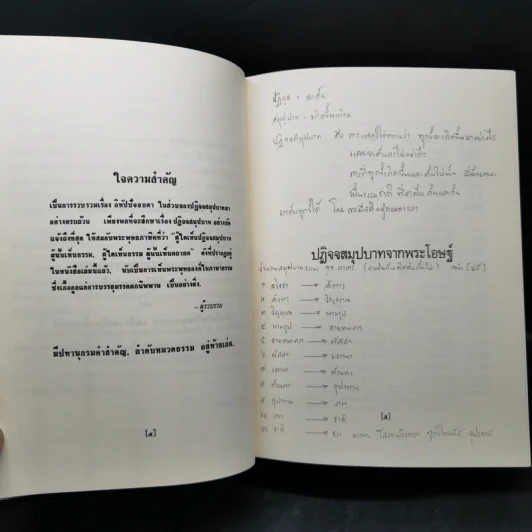 ใจความสำคัญ
เป็นการรวบรวมเรื่อง อิทัปปัจจยตา ในส่วนของปฏิจจสมุปบาทมา
อย่างครบถ้วน เพียงพอที่จะศึกษาเรื่อง ปฏิจจสมุปบาท อย่างชัด
แจ้งถึงที่สุด ให้สมกับพระพุทธภาษิตที่ว่า "ผู้ใดเห็นปฏิจจสมุปบาท
ผู้นั้นเห็นธรรม, ผู้ใดเห็นธรรม ผู้นั้นเห็นตถาคต" ดังที่ปรากฏอยู่
ในหนังสือเล่มนี้แล้ว, นับเป็นการเห็นพระพุทธองค์ในภาษาธรรม
ซึ่งเกื้อกูลแก่การบรรลุมรรคผลนิพพาน เป็นอย่างยิ่ง.
- ผู้รวบรวม
มีปทานุกรมคำสำคัญ, ลำดับหมวดธรรม อยู่ท้ายเล่ม.
[๔]
ปฏิจจ = อาศัย
สมุปบาท = เกิดขึ้นพร้อม
ปฏิจจสมุปบาท คือ การแสดงให้เห็นว่า ทุกข์จะเกิดขึ้นมาอย่างไร
และจะดับลงไปอย่างไร
การที่ทุกข์เกิดขึ้นและดับไปนั้น มีลักษณะ
เป็นธรรมชาติ ที่อาศัย
เราดับทุกข์ได้ โดย การมีสติอยู่ตลอดเวลา
ปฏิจจสมุปบาทจากพระโอษฐ์
๑. อวิชชา → สังขาร
๒. สังขาร → วิญญาณ
๓. วิญญาณ → นามรูป
๔. นามรูป → อายตนะ
๕. อายตนะ → ผัสสะ
๖. ผัสสะ → เวทนา
๗. เวทนา → ตัณหา
๘. ตัณหา → อุปาทาน
๙. อุปาทาน → ภพ
๑๐. ภพ → ชาติ
[๕]
๑๑. ชาติ → ชรา มรณะ โสกะปริเทวะ ทุกข์โทมนัส อุปายาส